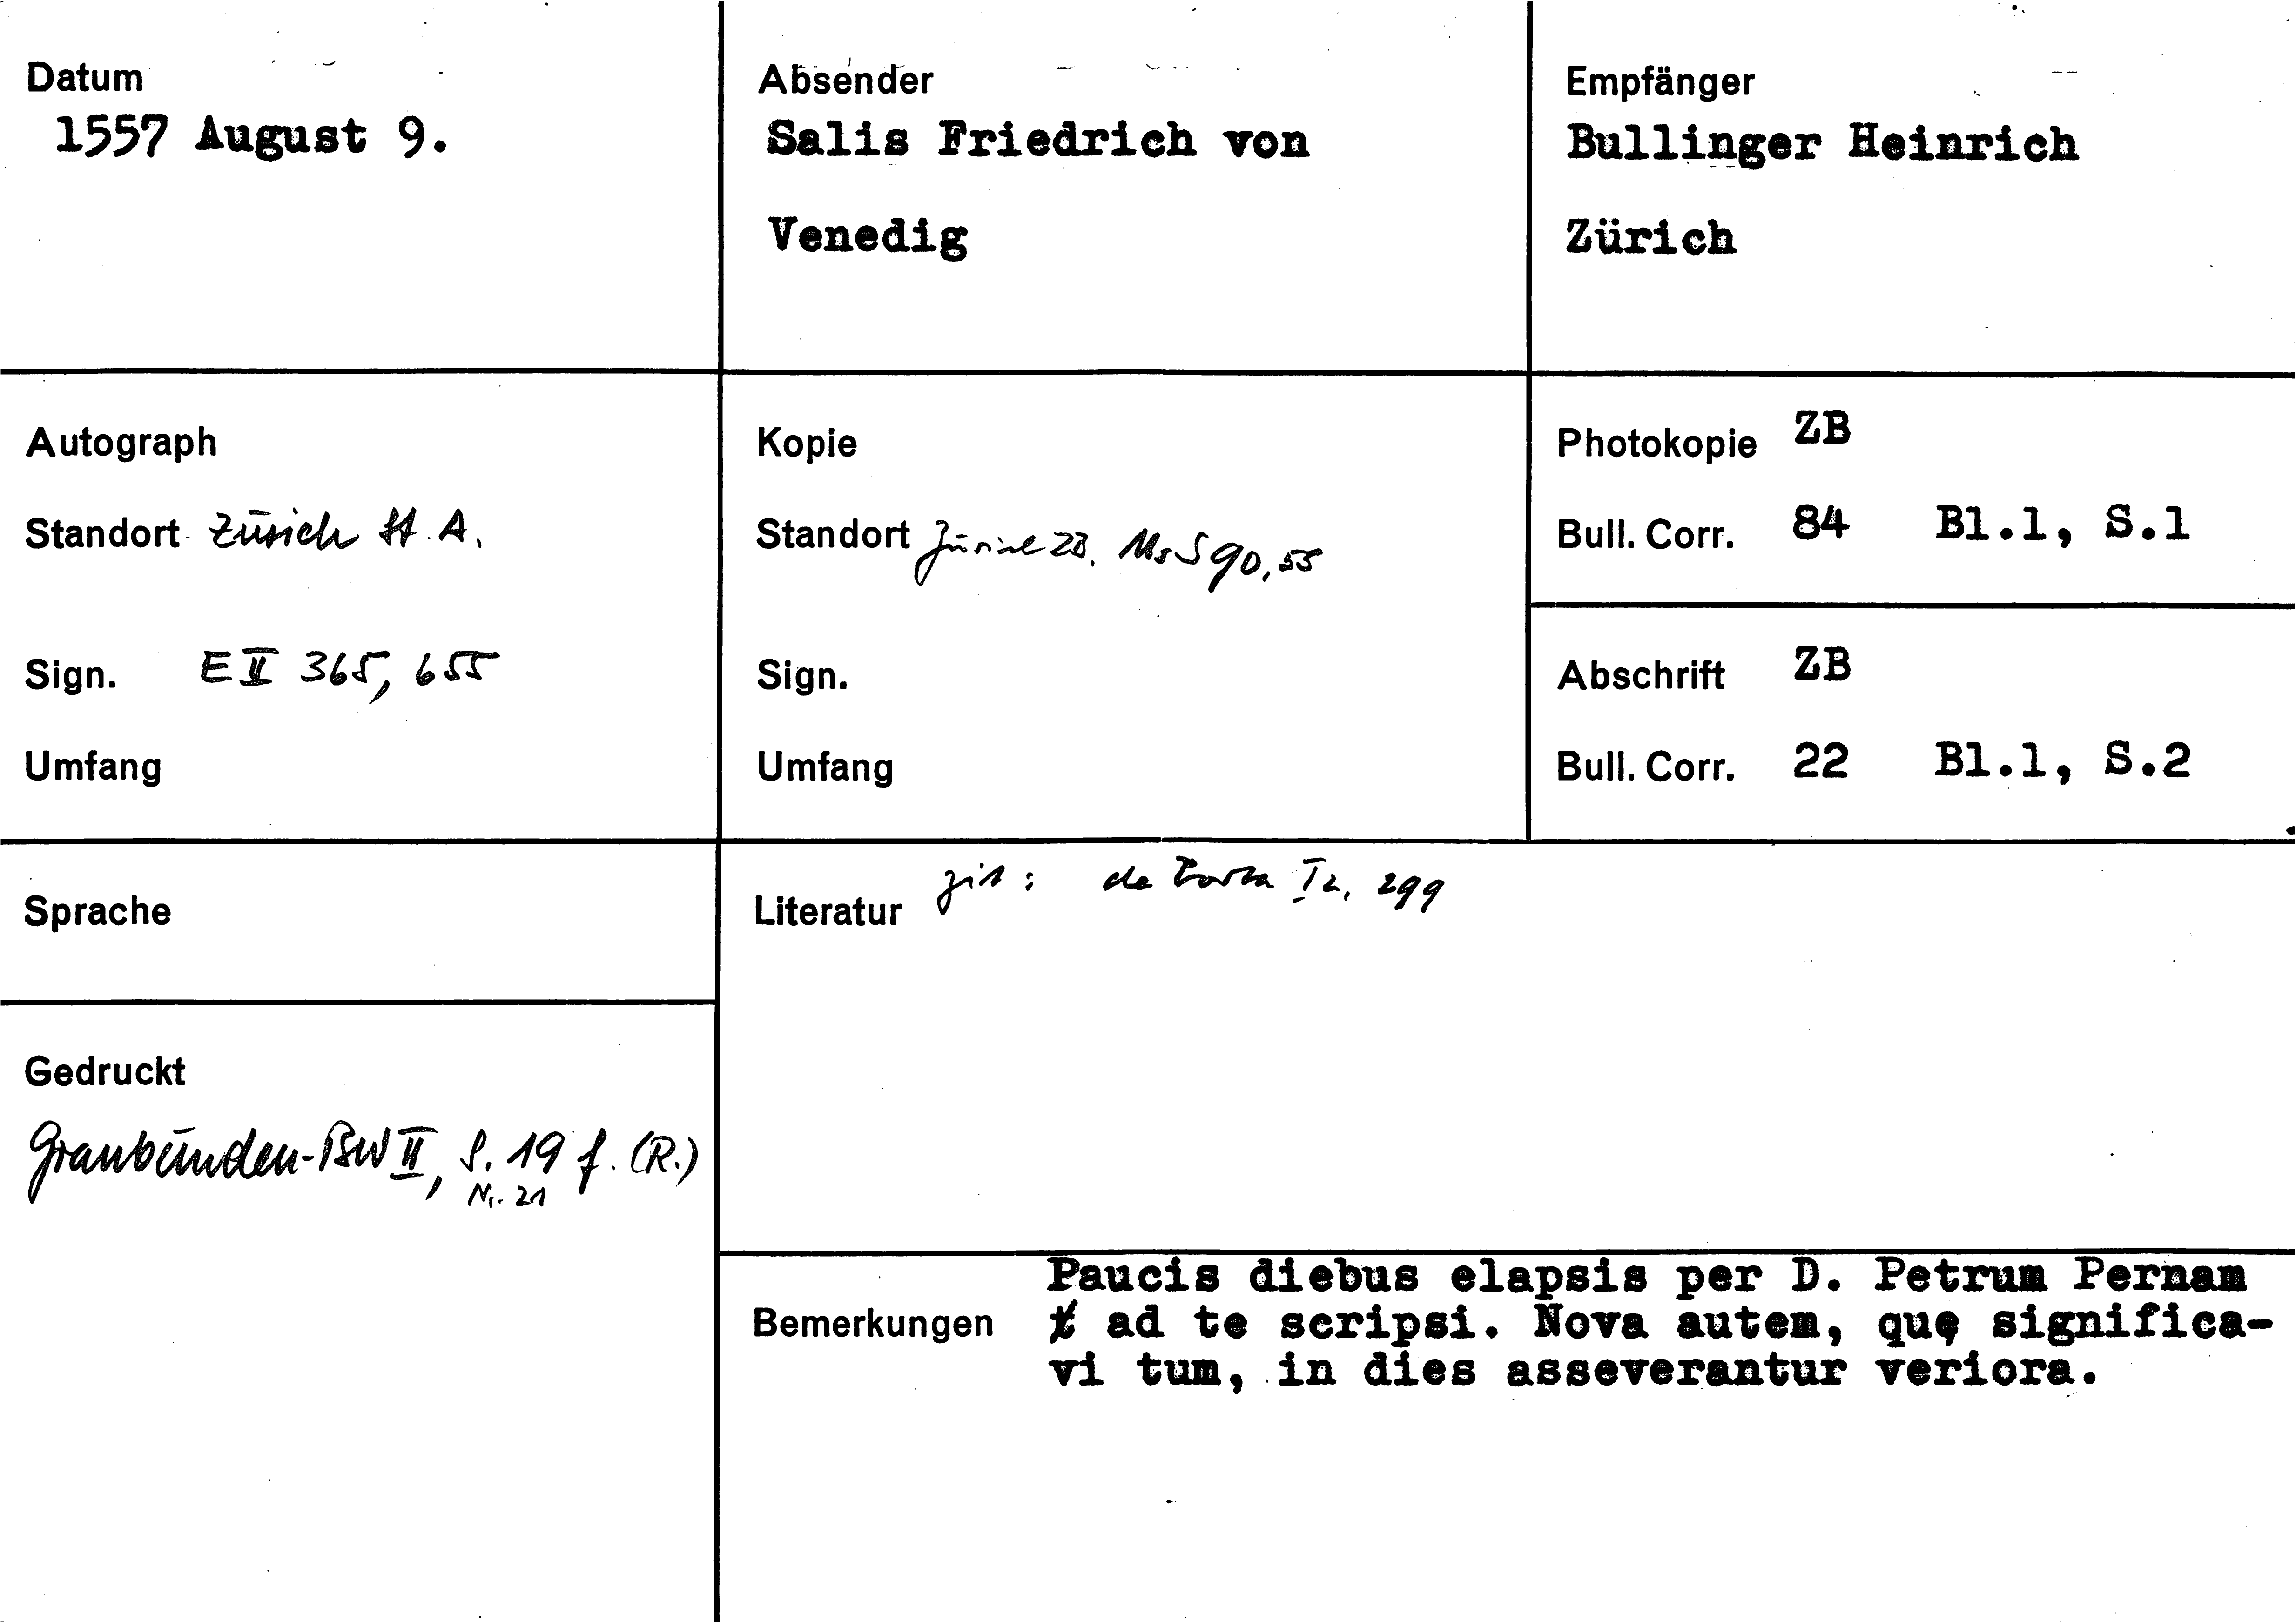 Datum
1557 August 9.
Absender
Salis Friedrich von
Venedig
Empfänger
Bullinger Heinrich
Zürich
Autograph
Standort Zürich StA.
Sign. E II 365, 655
Umfang
Kopie
Standort Zürich ZB. Ms S 90, 55
Sign.
Umfang
Photokopie ZB
Bull. Corr. 84 Bl.1, S.1
Abschrift ZB
Bull. Corr. 22 Bl.1, S.2
Sprache
Literatur zit: de Porta I 2, 299
Gedruckt
Graubünden-BW II, S. 19 f. (R.)
Nr. 21
Bemerkungen
Paucis diebus elapsis per D. Petrum Pernam
ad te scripsi. Nova autem, quę significa-
vi tum, in dies asseverantur veriora.